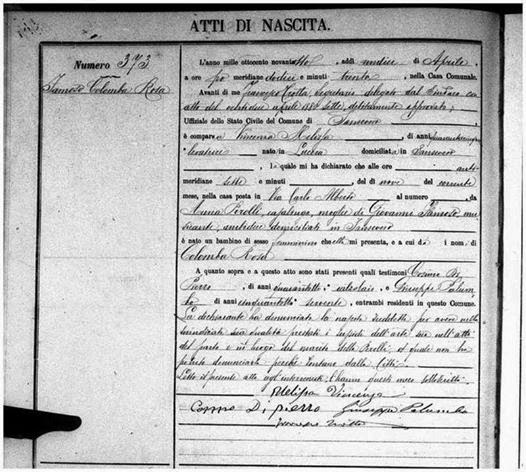 ATTI DI NASCITA.
Numero 373
Iamose Colomba Rosa
L'anno mille ottocento novantotto, addì undici di Aprile,
a ore po meridiane dodici e minuti trenta, nella Casa Comunale.
Avanti di me Giuseppe Segretario delegato dal Sindaco con
atto del aprile 188 sette, debitamente approvato,
Uffiziale dello Stato Civile del Comune di Sansevero
è comparsa Vincenza Melissa, di anni
levatrice nata in Lucera domiciliata in Sansevero
, la quale mi ha dichiarato che alle ore anti
meridiane sette e minuti, del dì nove del corrente
mese, nella casa posta in Via Carlo Alberto al numero, da
Anna casalinga, moglie di Giovanni Iamose
ambidue domiciliati in Sansevero
è nato un bambino di sesso femminino che essa mi presenta, e a cui dà i nomi di
Colomba Rosa
A quanto sopra e a questo atto sono stati presenti quali testimoni Cosimo Di
Pierro, di anni quarantotto, e Giuseppe Palum
bo, di anni cinquantotto, entrambi residenti in questo Comune.
La dichiarante ha denunciata la nascita suddetta per aver nella
suindicata sua qualità prestati i suoi nell'atto
del parto e in luogo del marito della il quale non ha
potuto denunciare perché lontano dalla città.
Letto il presente atto agl'intervenuti, l'hanno questi meco sottoscritto.
Melissa Vincenza
Cosmo Di pierro Giuseppe Palumbo